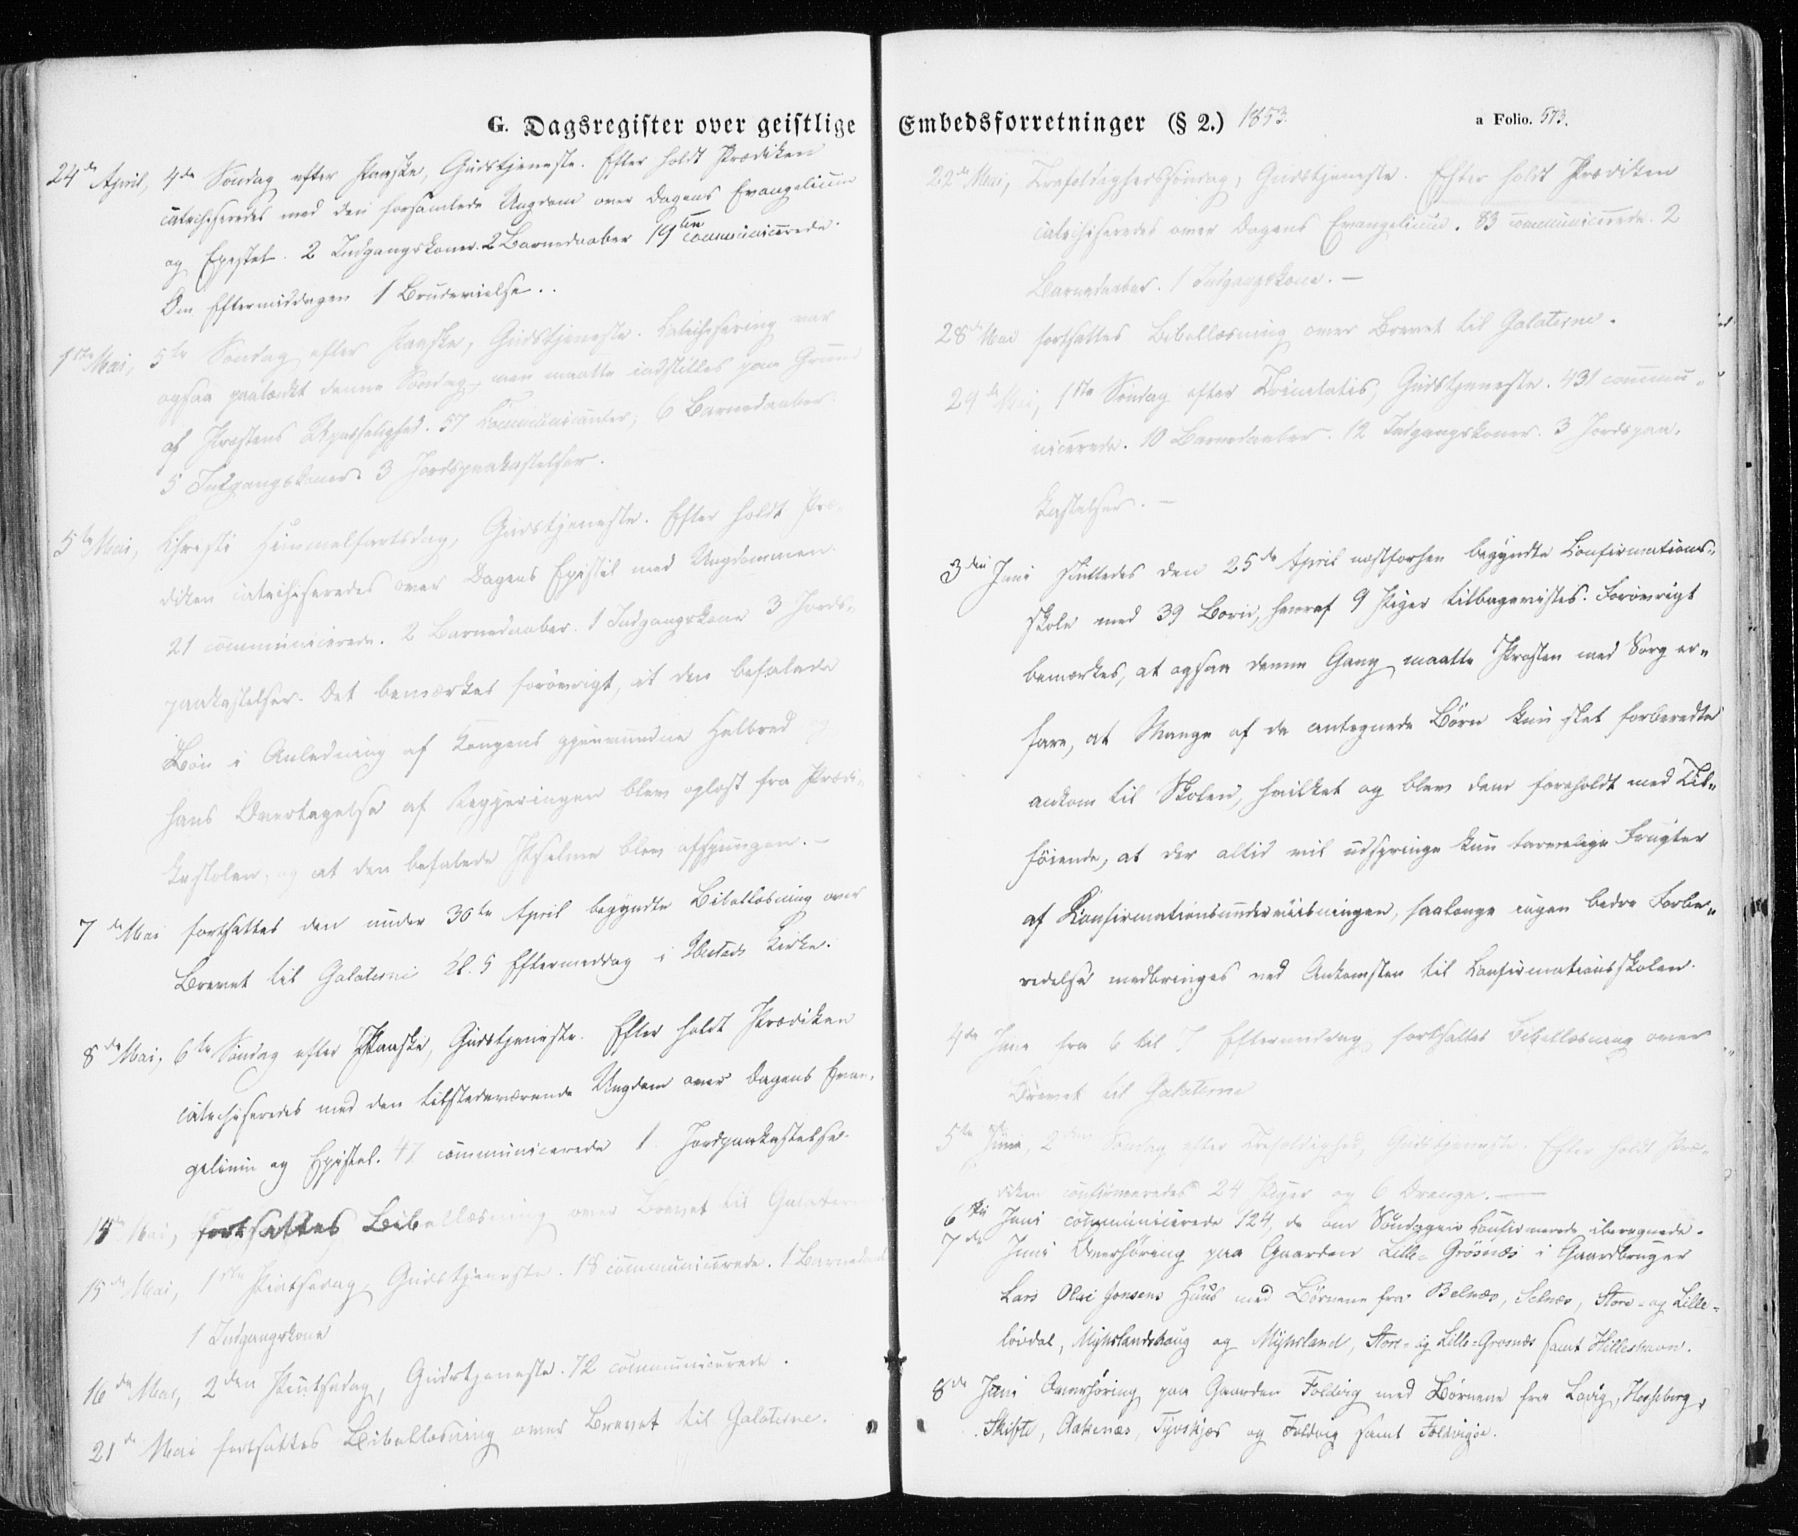 G. Dagsregister over geistlige
24de April, 4de Søndag efter Paaske, Gudstjeneste. Efter holdt Prædiken
catechiseredes med den forsamlede Ungdom over Dagens Evangelium
og Epistel. 2 Indgangskoner. 2 Barnedaaber 19 communicerede.
Om Eftermiddagen 1 Brudevielse..
1ste Mai, 5te Søndag efter Paaske, Gudstjeneste. Catechisering var
ogsaa paatænkt denne Søndag, men maatte indstilles paa Grund
af Præstens Upasselighed. 57 Communicanter, 6 Barnedaaber
5 Indgangskoner 3 Jordspaakastelser.
5te Mai, Christi Himmelfartsdag, Gudstjeneste. Efter holdt Præ-
diken catechiseredes over Dagens Epistel med Ungdommen.
21 communicerede. 2 Barnedaaber. 1 Indgangskone 3 Jords-
paakastelser. Det bemærkes forøvrigt, at den befalede
Bøn i Anledning af Kongens gjenvundne Helbred og
hans Overtagelse af Regjeringen blev oplæst fra Prædi-
kestolen, og at den befalede Psalme blev afsjungen. -
7de Mai fortsattes den under 30te April begyndte Bibellæsning over
Brevet til Galaterne Kl. 5 Eftermiddag i Ibestads Kirke.
8de Mai, 6te Søndag efter Paaske, Gudstjeneste. Efter holdt Prædiken
catechiseredes med den tilstedeværende Ungdom over Dagens Evan-
gelium og Epistel. 47 communicerede 1 Jordpaakastelse.
14de Mai, fortsattes Bibellæsning over Brevet til Galaterne
15de Mai, 1ste Pintsedag, Gudstjeneste. 18 communicerede. 1 Barnedaab
1 Indgangskone
16de Mai, 2den Pintsedag, Gudstjeneste. 72 communicerede.
21de Mai fortsattes Bibellæsning over Brevet til Galaterne.
Embedsforretninger (§ 2.) 1853. a Folio. 573.
22de Mai, Trefoldighedssøndag, Gudstjeneste. Efter holdt Prædiken
catechiseredes over Dagens Evangelium. 83 communicerede. 2
Barnedaaber. 1 Indgangskone. -
28de Mai fortsattes Bibellæsning over Brevet til Galaterne.
29de Mai, 1ste Søndag efter Trinitatis, Gudstjeneste. 431 commu-
nicerede. 10 Barnedaaber. 12 Indgangskoner. 3 Jordspaa-
kastelser. -
3die Juni sluttedes den 25de April næstforhen begyndte Confirmations-
skole med 39 Børn, hvoraf 9 Piger tilbagevistes. Forøvrigt
bemærkes, at ogsaa denne Gang maatte Præsten med Sorg er-
fare, at Mange af de antegnede Børn kun slet forberedte
ankom til Skolen, hvilket og blev dem foreholdt med Til-
føiende, at der altid vil udspringe kun tarvelige Frugter
af Konfirmationsunderviisningen, saalænge ingen bedre Forbe-
redelse medbringes ved Ankomsten til Confirmationsskolen.
4de Juni fra 6 til 7 Eftermiddag fortsattes Bibellæsning over
Brevet til Galaterne
5te Juni, 2den Søndag efter Trefoldighed, Gudstjeneste. Efter holdt Præ-
diken confirmeredes 24 Piger og 6 Drenge. —
6te Juni communicerede 124, de om Søndagen Confirmerede iberegnede.
7de Juni Overhøring paa Gaarden Lille-Grøsnæs i Gaardbruger
Lars Olai Jonsens Huus med Børnene fra Belnæs, Selnæs, Store- og Lille-
løvdal, Myhrlandshaug og Myhrland, Store- og Lille-Grosnæs samt Hilleshavn.
8de Juni Overhøring paa Gaarden Foldvig med Børnene fra Lavig, Hesseberg,
Skifte, Aakenæs, Tyvskjæs og Foldvig samt Foldvigøe.